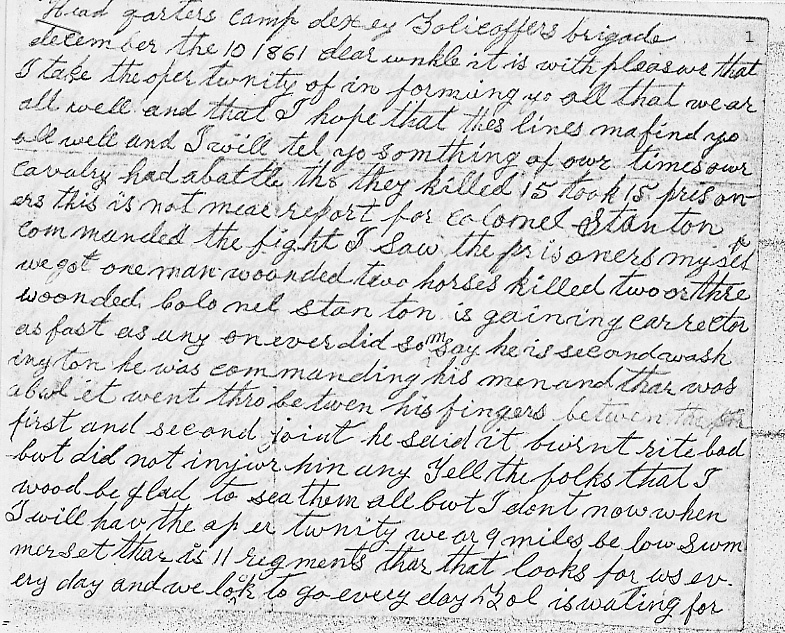 Head qarters camp dexey Zolicoffers brigade
1
december the 10 1861 dear unkle it is with pleasure that
I take the oper twnity of in forming yo all that we ar
all well and that I hope that thes lines mafind yo
all well and I will tel yo somthing of our times our
cavalry had abattle ths they killed 15 took 15 prison
ers this is not mear report for colonel Stanton
commanded the fight I saw the prisoners myself
we got one man woonded two horses killed two or thre
woonded. Colo nel stan ton is gaining carrector
as fast as any one ever did som say he is second wash
ington he was commanding his men and thar was
abul et went thro be twen his fingers betwen the
first and second joint he said it burnt rite bad
but did not injur him any Tell the folks that I
wood be glad to sea them all but I dont now when
I will hav the aper twnity we ar 9 miles be low Sum
merset thar is 11 regments thar that looks for us ev-
ery day and we look to go every day Zol is wating for